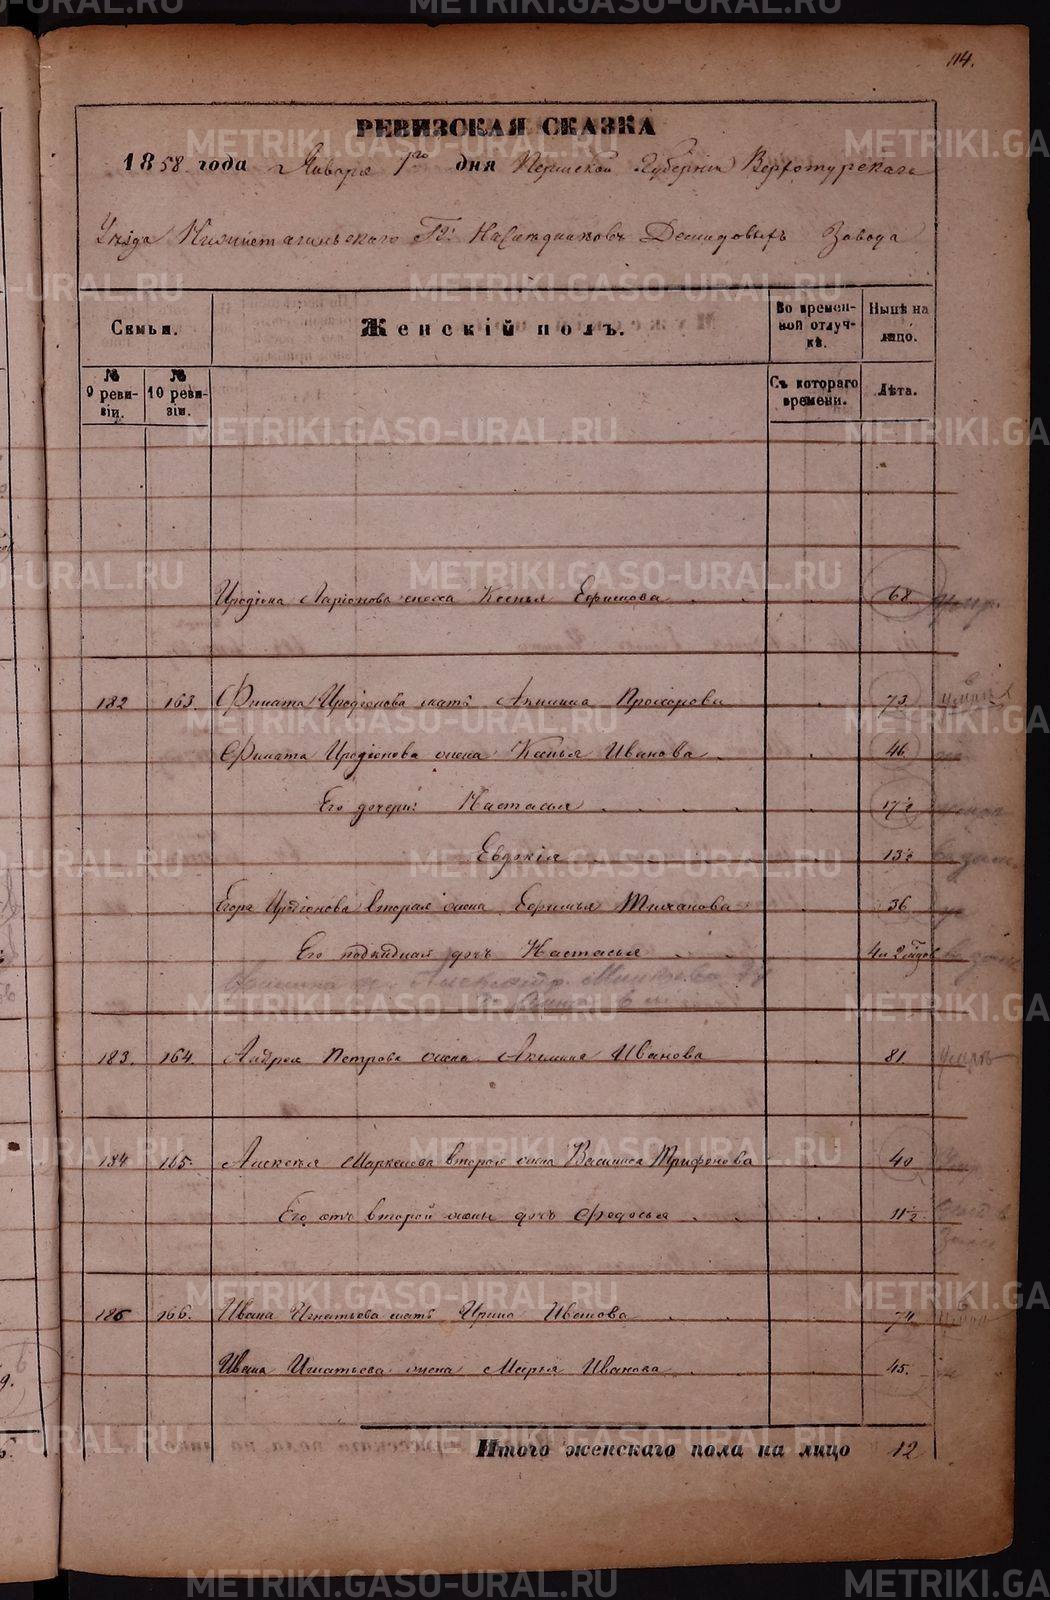 114.
РЕВИЗСКАЯ СКАЗКА
1858 года Января 1го дня Пермской Губерніи Верхотурскаго
Уѣзда Нижнетагильскаго Гг: Наслѣдниковъ Демидовыхъ Завода
Семьи.
Женскій полъ.
Во времен-
ной отлуч-
кѣ.
Нынѣ на
лицо.
№
9 реви-
зіи.
№
10 реви-
зіи.
Съ котораго
времени.
Лѣта.
Иродіона Ларіонова жена Ксенья Ефимова 68
182 163. Филата Иродіонова мать Акилина Прохорова 73
Филата Иродіонова жена Ксенья Иванова 46
Его дочери: Настасья 17½
Евдокія 13½
Егора Иродіонова вторая жена 36
Его подкидная дочь Настасья 4
183. 164. Андрея Петрова жена Акилина Иванова 81.
184 165. Алексѣя Маркелова вторая жена Василиса Трифонова 40
Его отъ второй жены дочь Федосья 11½
185 166. Ивана Игнатьева мать Ирина Иванова 74
Ивана Игнатьева жена Марья Иванова 45.
Итого женскаго пола на лицо 12
METRIKI.GASO-URAL.RU